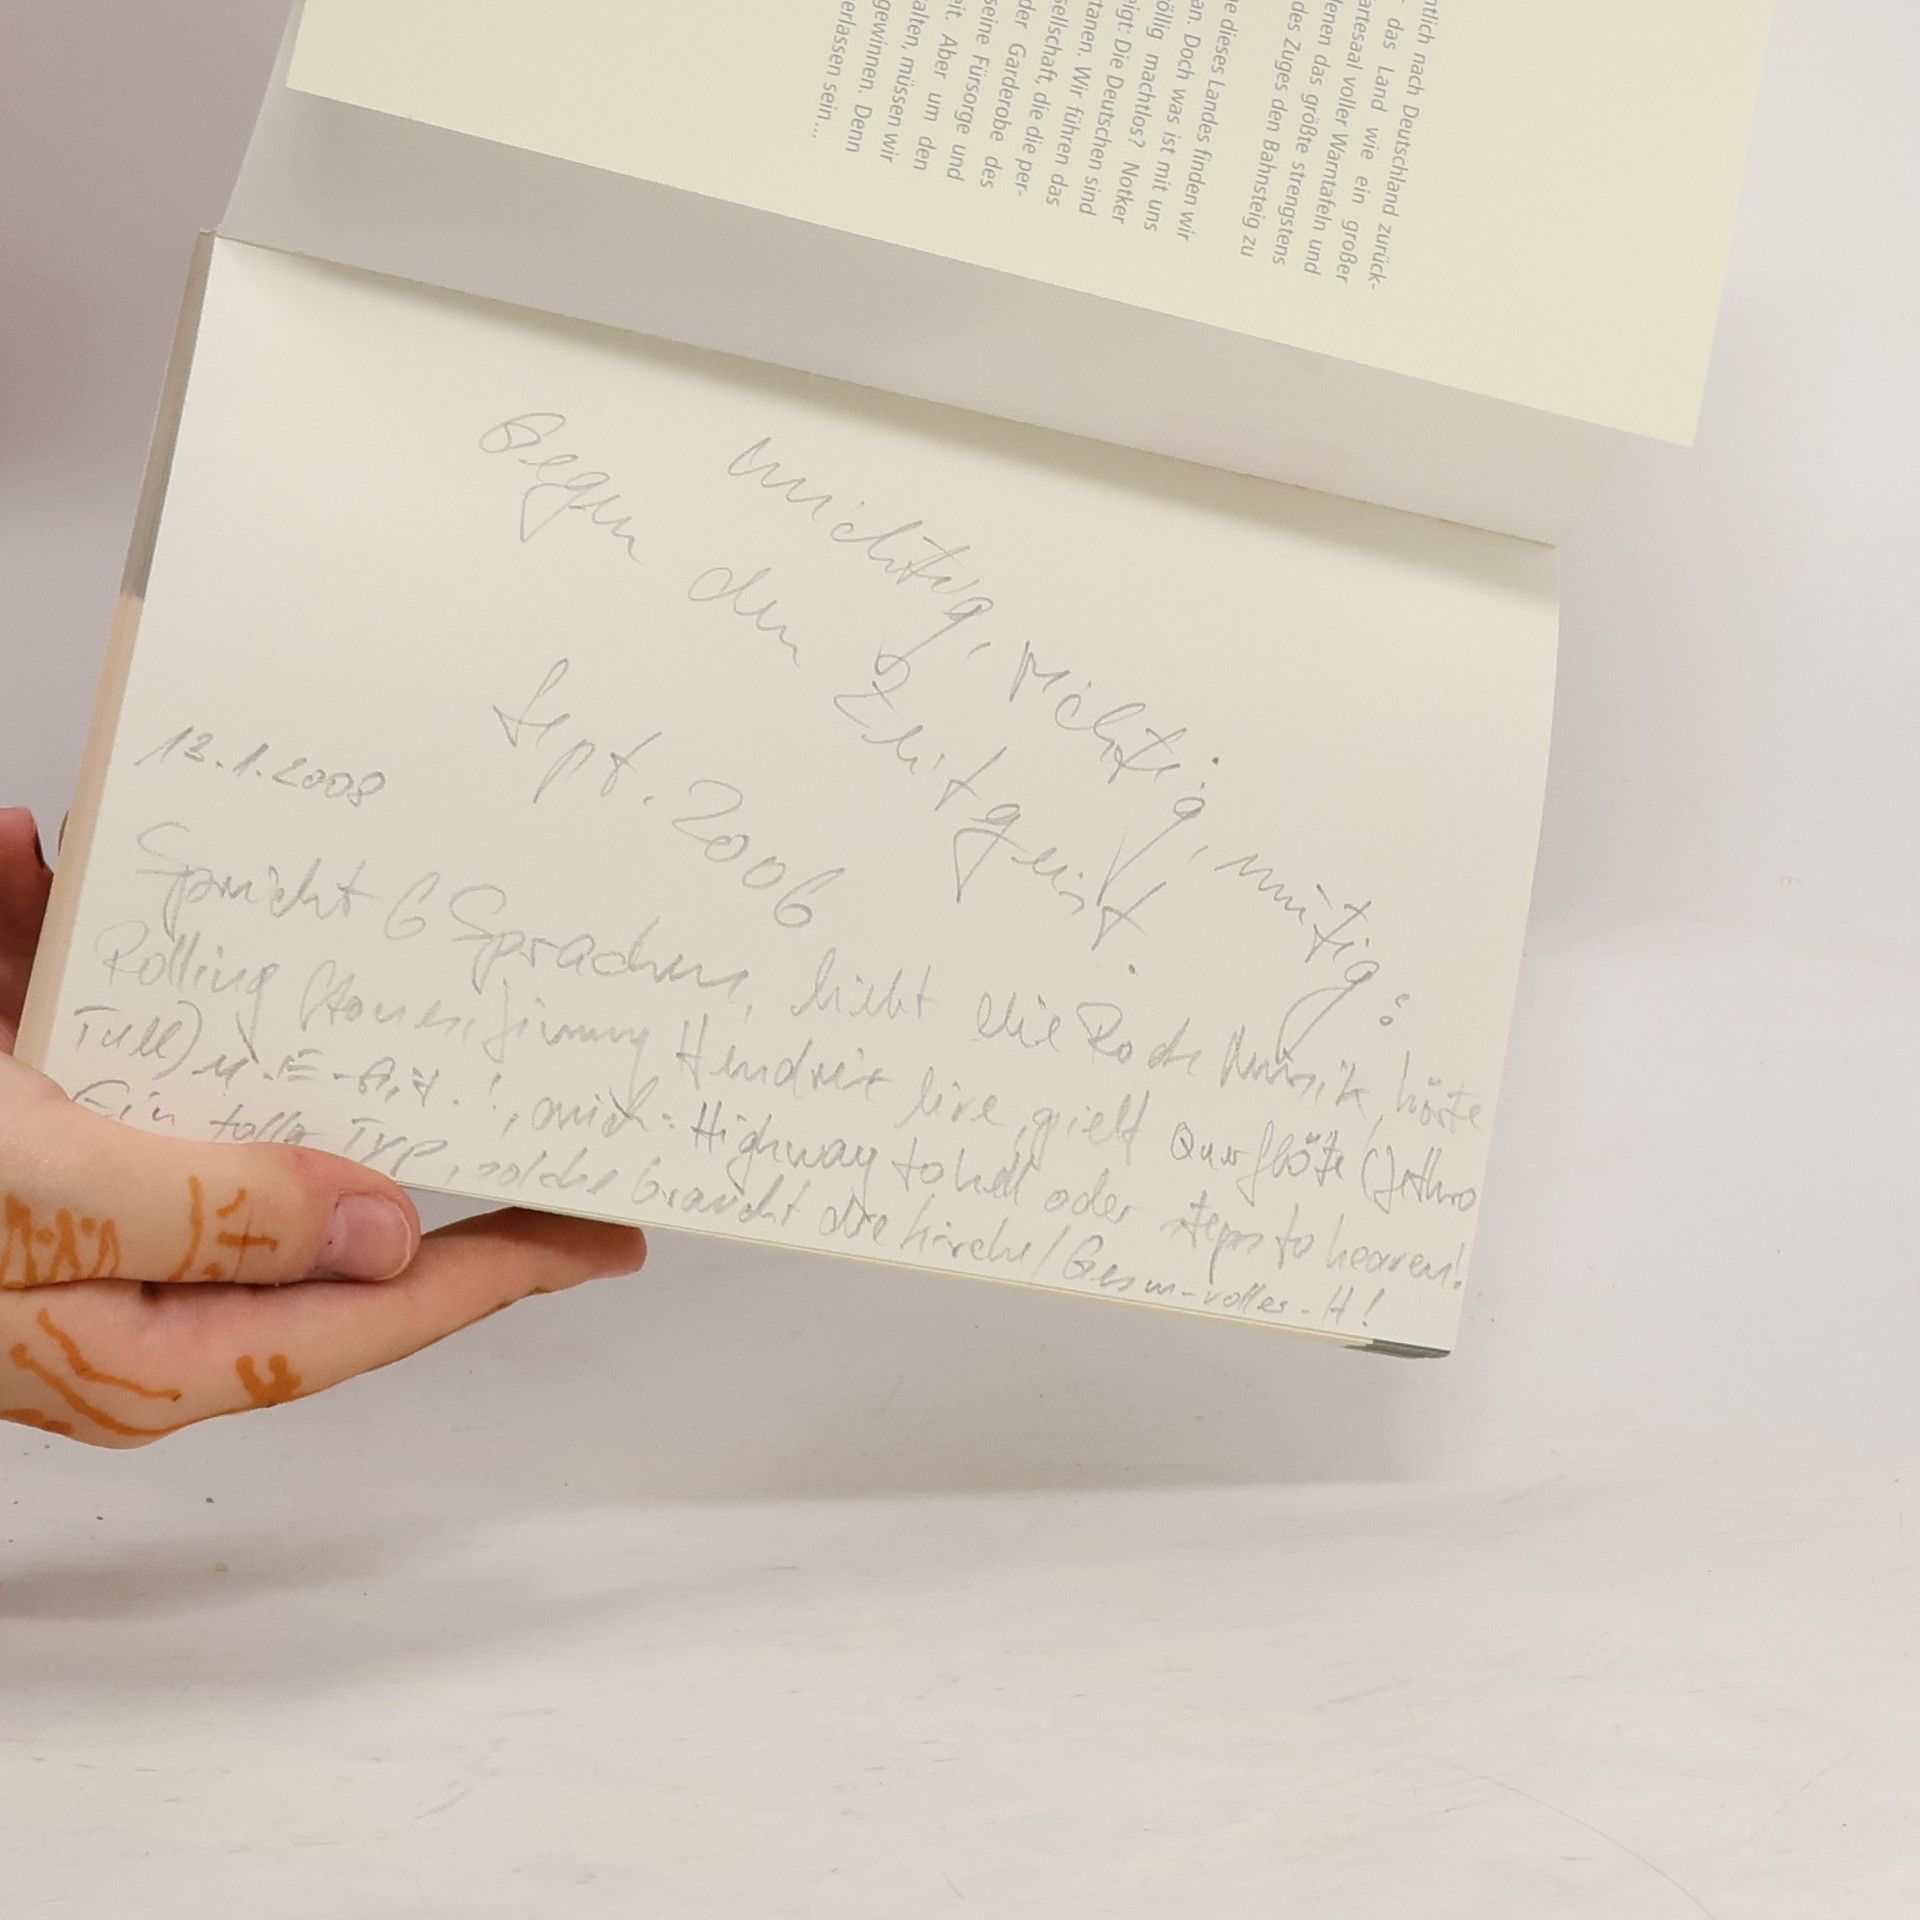 ntlich nach Deutschland zurück-
das Land wie ein großer
artesaal voller Warntafeln und
denen das größte strengstens
des Zuges den Bahnsteig zu
e dieses Landes finden wir
an. Doch was ist mit uns
öllig machtlos? Notker
eigt: Die Deutschen sind
tanen. Wir führen das
sellschaft, die die per-
der Garderobe des
seine Fürsorge und
eit. Aber um den
alten, müssen wir
gewinnen. Denn
erlassen sein...
wichtig, richtig, mutig:
Gegen den Zeitgeist.
Sept. 2006
13.1.2008
Spricht 6 Sprachen, liebt die Rock Musik, hörte
Rolling Stones, Jimmy Hendrix live, spielt Querflöte (Jethro
Tull) u. E-Git.!, auch: Highway to hell oder steps to heaven!
Ein toller Typ, solche braucht die Kirche/